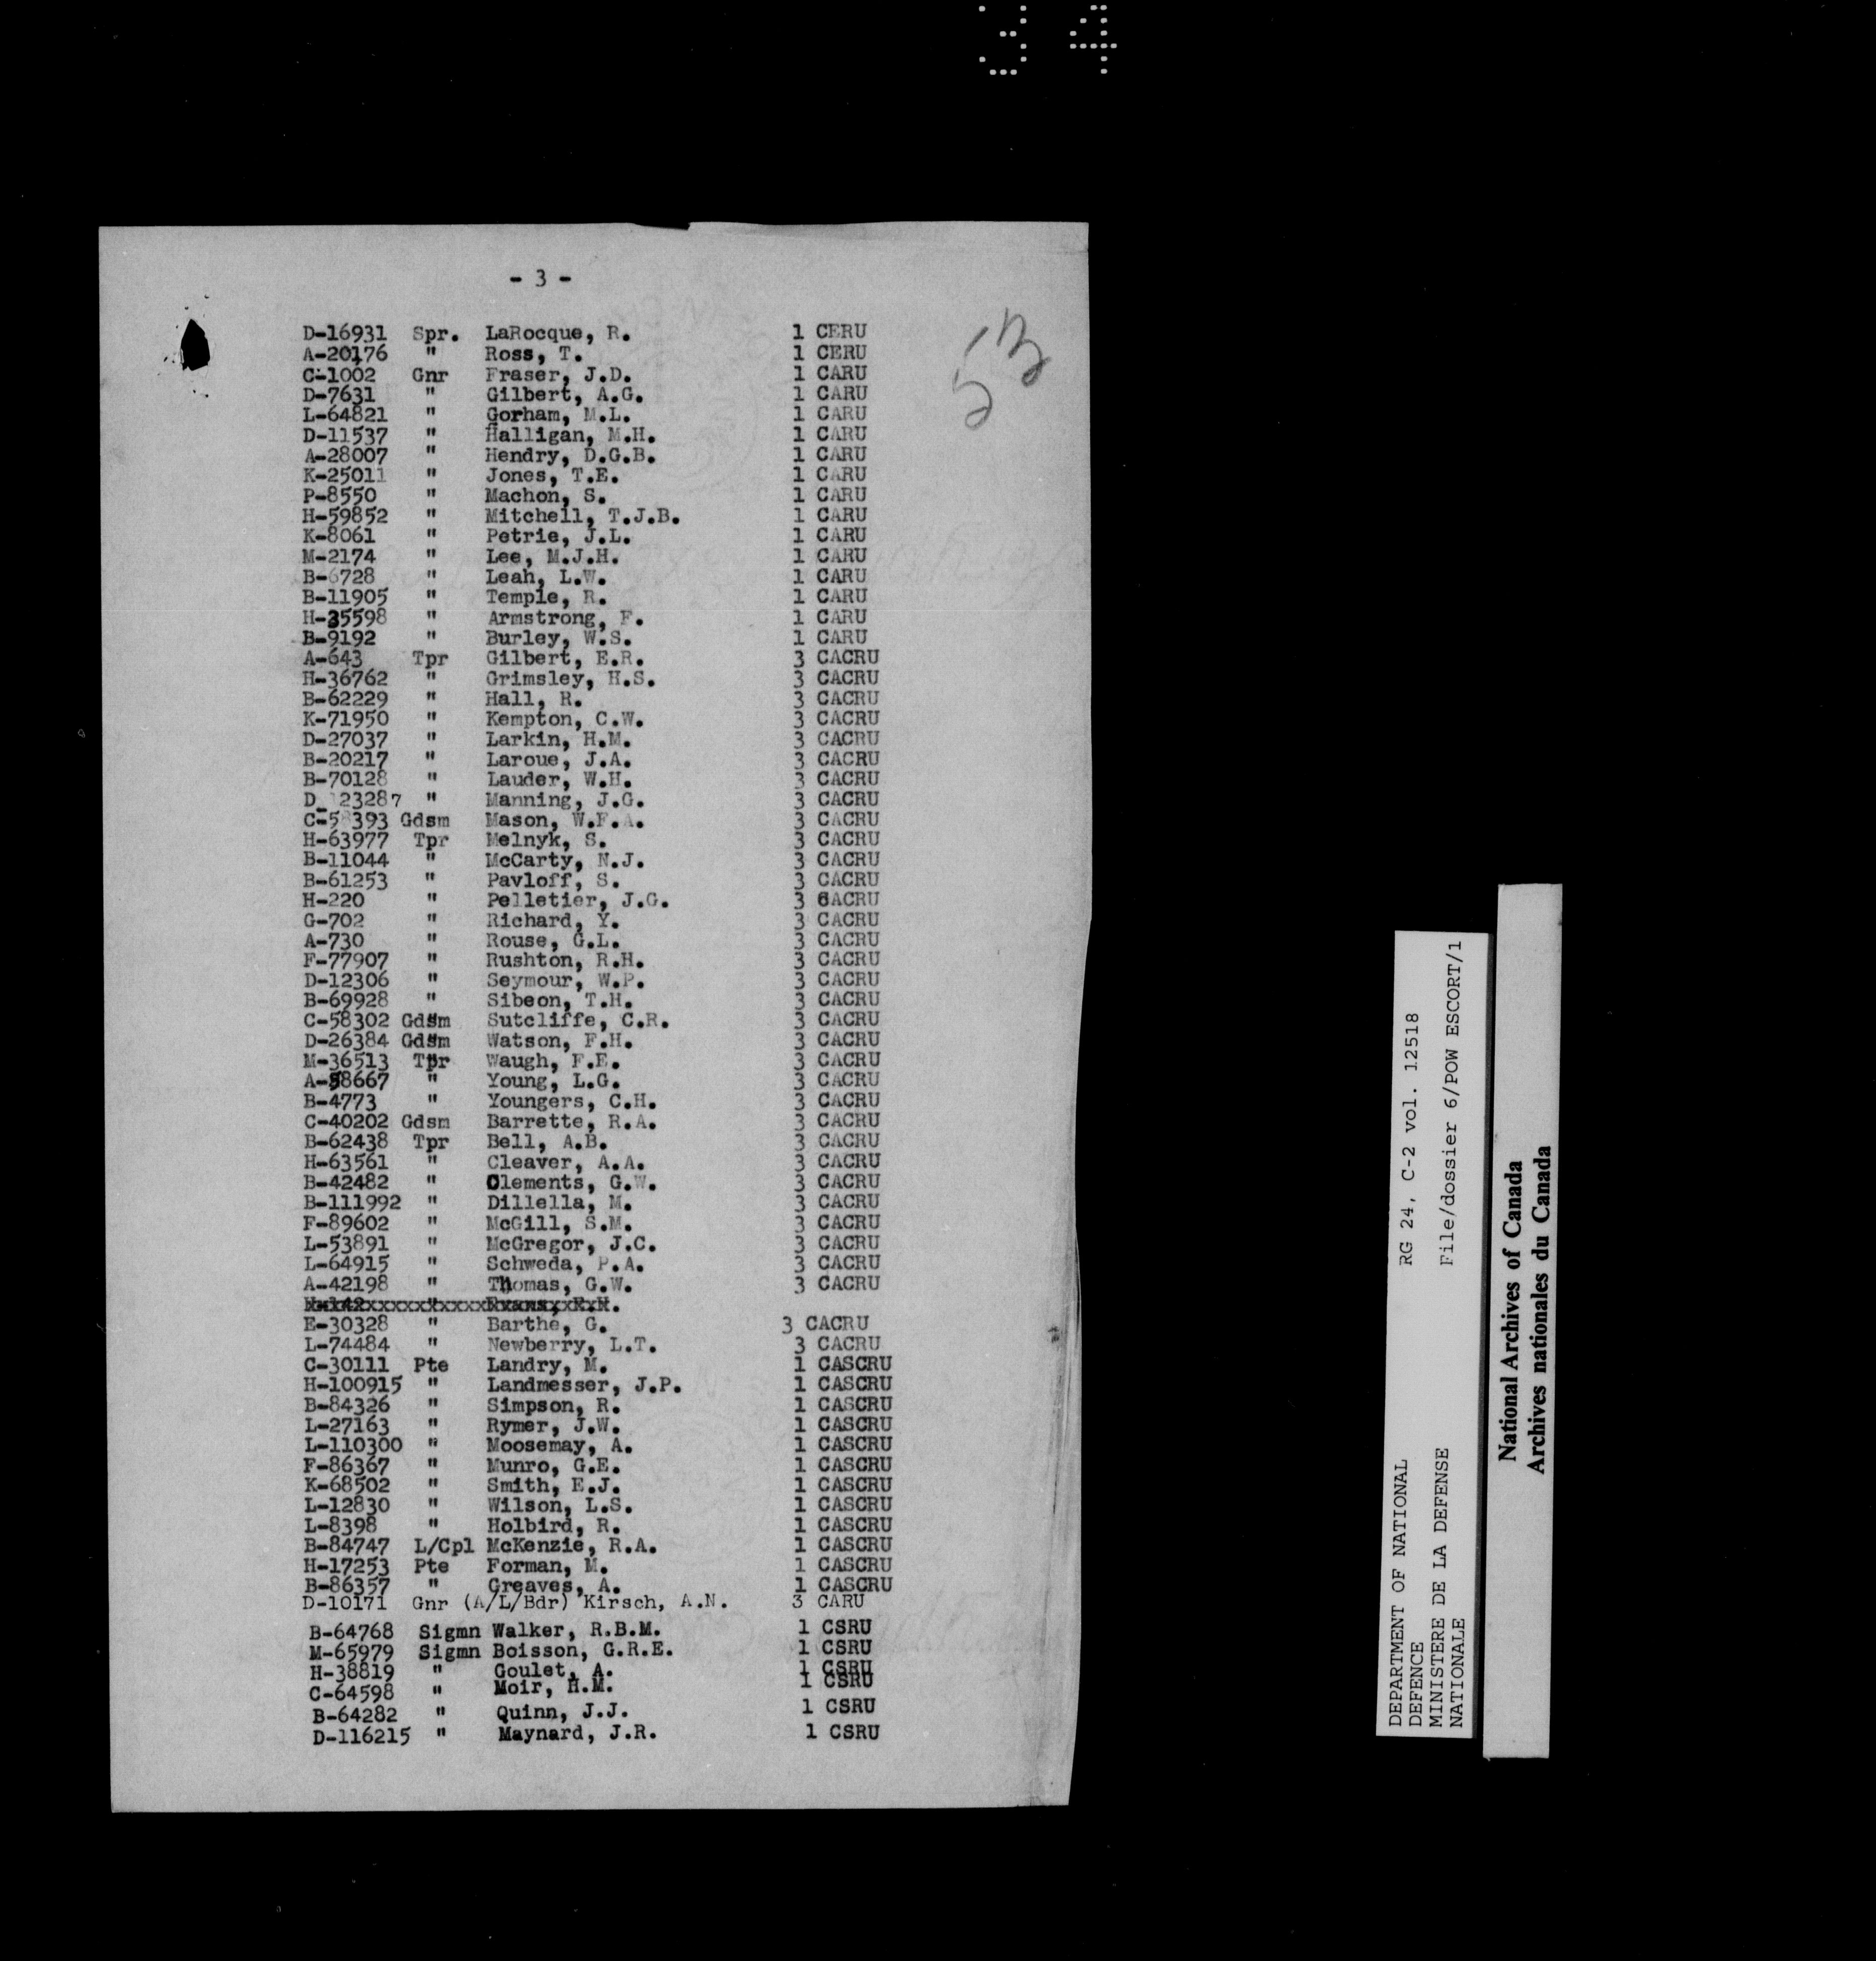 34
- 3 -
53
D-16931 Spr. LaRocque, R. 1 CERU
A-20176 " Ross, T. 1 CERU
C-1002 Gnr Fraser, J.D. 1 CARU
D-7631 " Gilbert, A.G. 1 CARU
L-64821 " Gorham, M.L. 1 CARU
D-11537 " Halligan, M.H. 1 CARU
A-28007 " Hendry, D.G.B. 1 CARU
K-25011 " Jones, T.E. 1 CARU
P-8550 " Machon, S. 1 CARU
H-59852 " Mitchell, T.J.B. 1 CARU
K-8061 " Petrie, J.L. 1 CARU
M-2174 " Lee, M.J.H. 1 CARU
B-6728 " Leah, L.W. 1 CARU
B-11905 " Temple, R. 1 CARU
H-35598 " Armstrong, F. 1 CARU
B-9192 " Burley, W.S. 1 CARU
A-643 Tpr Gilbert, E.R. 3 CACRU
H-36762 " Grimsley, H.S. 3 CACRU
B-62229 " Hall, R. 3 CACRU
K-71950 " Kempton, C.W. 3 CACRU
D-27037 " Larkin, H.M. 3 CACRU
B-20217 " Laroue, J.A. 3 CACRU
B-70128 " Lauder, W.H. 3 CACRU
D_ 23287 " Manning, J.G. 3 CACRU
C-58393 Gdsm Mason, W.F.A. 3 CACRU
H-63977 Tpr Melnyk, S. 3 CACRU
B-11044 " McCarty, N.J. 3 CACRU
B-61253 " Pavloff, S. 3 CACRU
H-220 " Pelletier, J.G. 3 CACRU
G-702 " Richard, Y. 3 CACRU
A-730 " Rouse, G.L. 3 CACRU
F-77907 " Rushton, R.H. 3 CACRU
D-12306 " Seymour, W.P. 3 CACRU
B-69928 " Sibeon, T.H. 3 CACRU
C-58302 Gdsm Sutcliffe, C.R. 3 CACRU
D-26384 Gdsm Watson, F.H. 3 CACRU
M-36513 Tpr Waugh, F.E. 3 CACRU
A-58667 " Young, L.G. 3 CACRU
B-4773 " Youngers, C.H. 3 CACRU
C-40202 Gdsm Barrette, R.A. 3 CACRU
B-62438 Tpr Bell, A.B. 3 CACRU
H-63561 " Cleaver, A.A. 3 CACRU
B-42482 " Clements, G.W. 3 CACRU
B-111992 " Dillella, M. 3 CACRU
F-89602 " McGill, S.M. 3 CACRU
L-53891 " McGregor, J.C. 3 CACRU
L-64915 " Schweda, P.A. 3 CACRU
A-42198 " Thomas, G.W. 3 CACRU
E-30328 " Barthe, G. 3 CACRU
L-74484 " Newberry, L.T. 3 CACRU
C-30111 Pte Landry, M. 1 CASCRU
H-100915 " Landmesser, J.P. 1 CASCRU
B-84326 " Simpson, R. 1 CASCRU
L-27163 " Rymer, J.W. 1 CASCRU
L-110300 " Moosemay, A. 1 CASCRU
F-86367 " Munro, G.E. 1 CASCRU
K-68502 " Smith, E.J. 1 CASCRU
L-12830 " Wilson, L.S. 1 CASCRU
L-8398 " Holbird, R. 1 CASCRU
B-84747 L/Cpl McKenzie, R.A. 1 CASCRU
H-17253 Pte Forman, M. 1 CASCRU
B-86357 " Greaves, A. 1 CASCRU
D-10171 Gnr (A/L/Bdr) Kirsch, A.N. 3 CARU
B-64768 Sigmn Walker, R.B.M. 1 CSRU
M-65979 Sigmn Boisson, G.R.E. 1 CSRU
H-38819 " Goulet, A. 1 CSRU
C-64598 " Moir, H.M. 1 CSRU
B-64282 " Quinn, J.J. 1 CSRU
D-116215 " Maynard, J.R. 1 CSRU
DEPARTMENT OF NATIONAL RG 24, C-2 vol. 12518
DEFENCE
MINISTERE DE LA DEFENSE File/dossier 6/POW ESCORT/1
NATIONALE
National Archives of Canada
Archives nationales du Canada